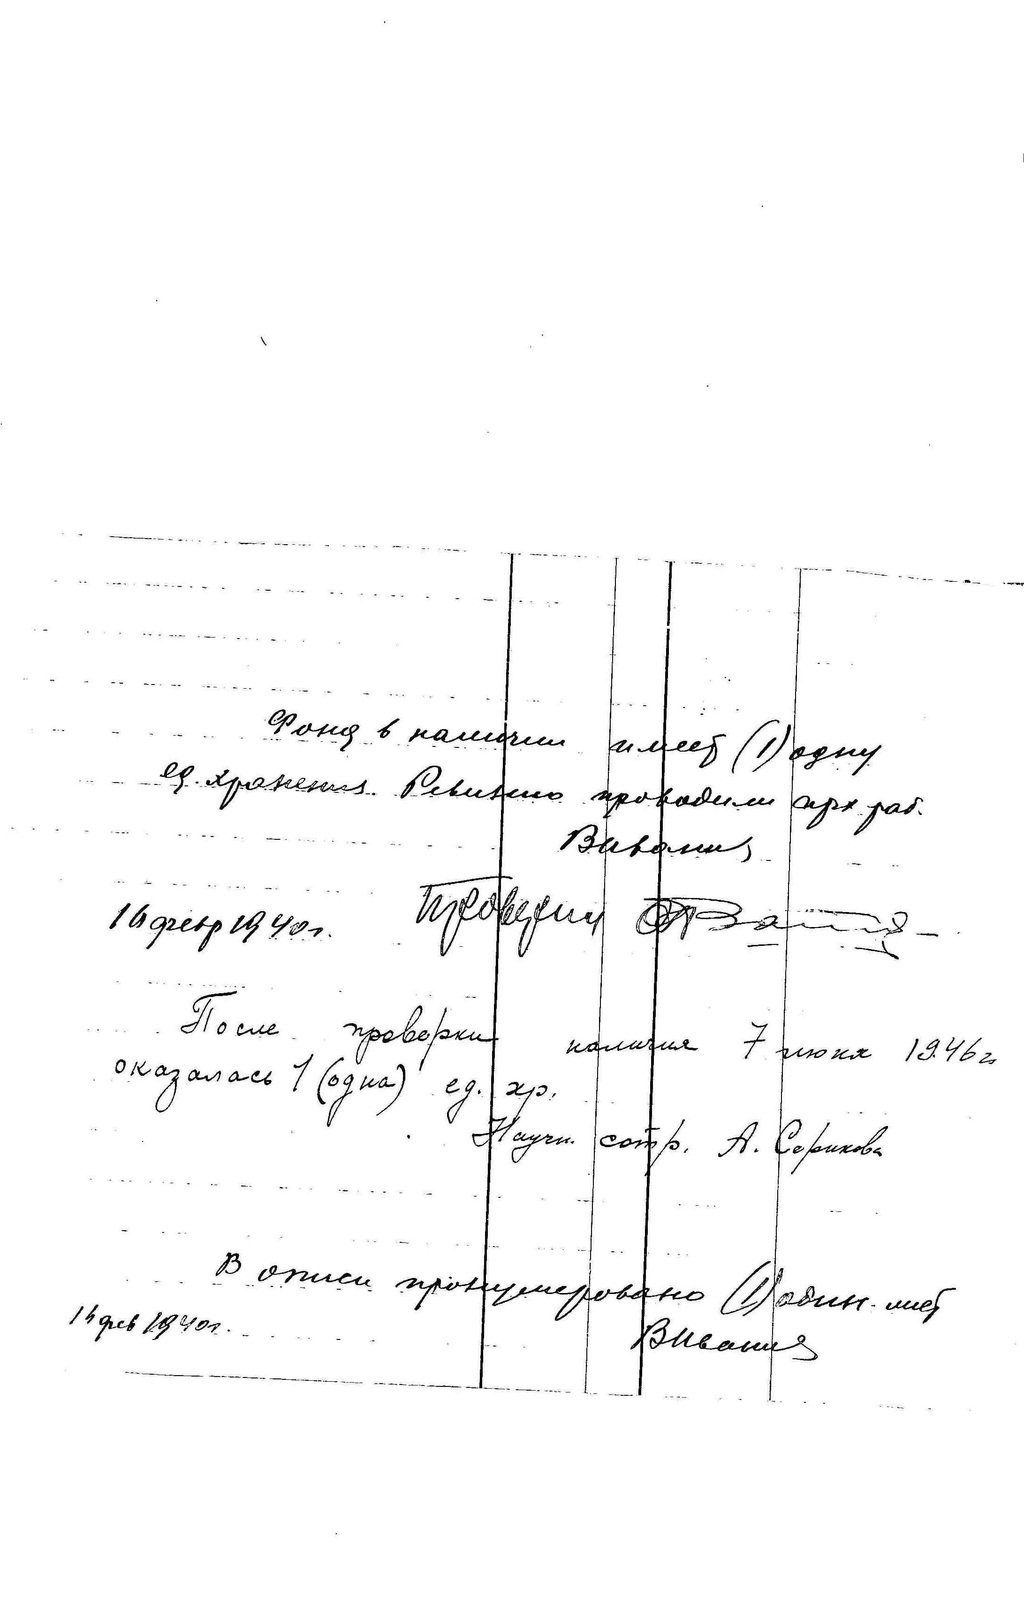 Фонд в наличии имеет (1) одну
ед. хранения. Ревизию проводили арх раб.
14 февр 1940 г. Проверил
После проверки наличия 7 июня 1946 г
оказалась 1 (одна) ед. хр.
Научн. сотр. А. Серикова
В описи пронумеровано (1) один лист
14 фев 1940 г.